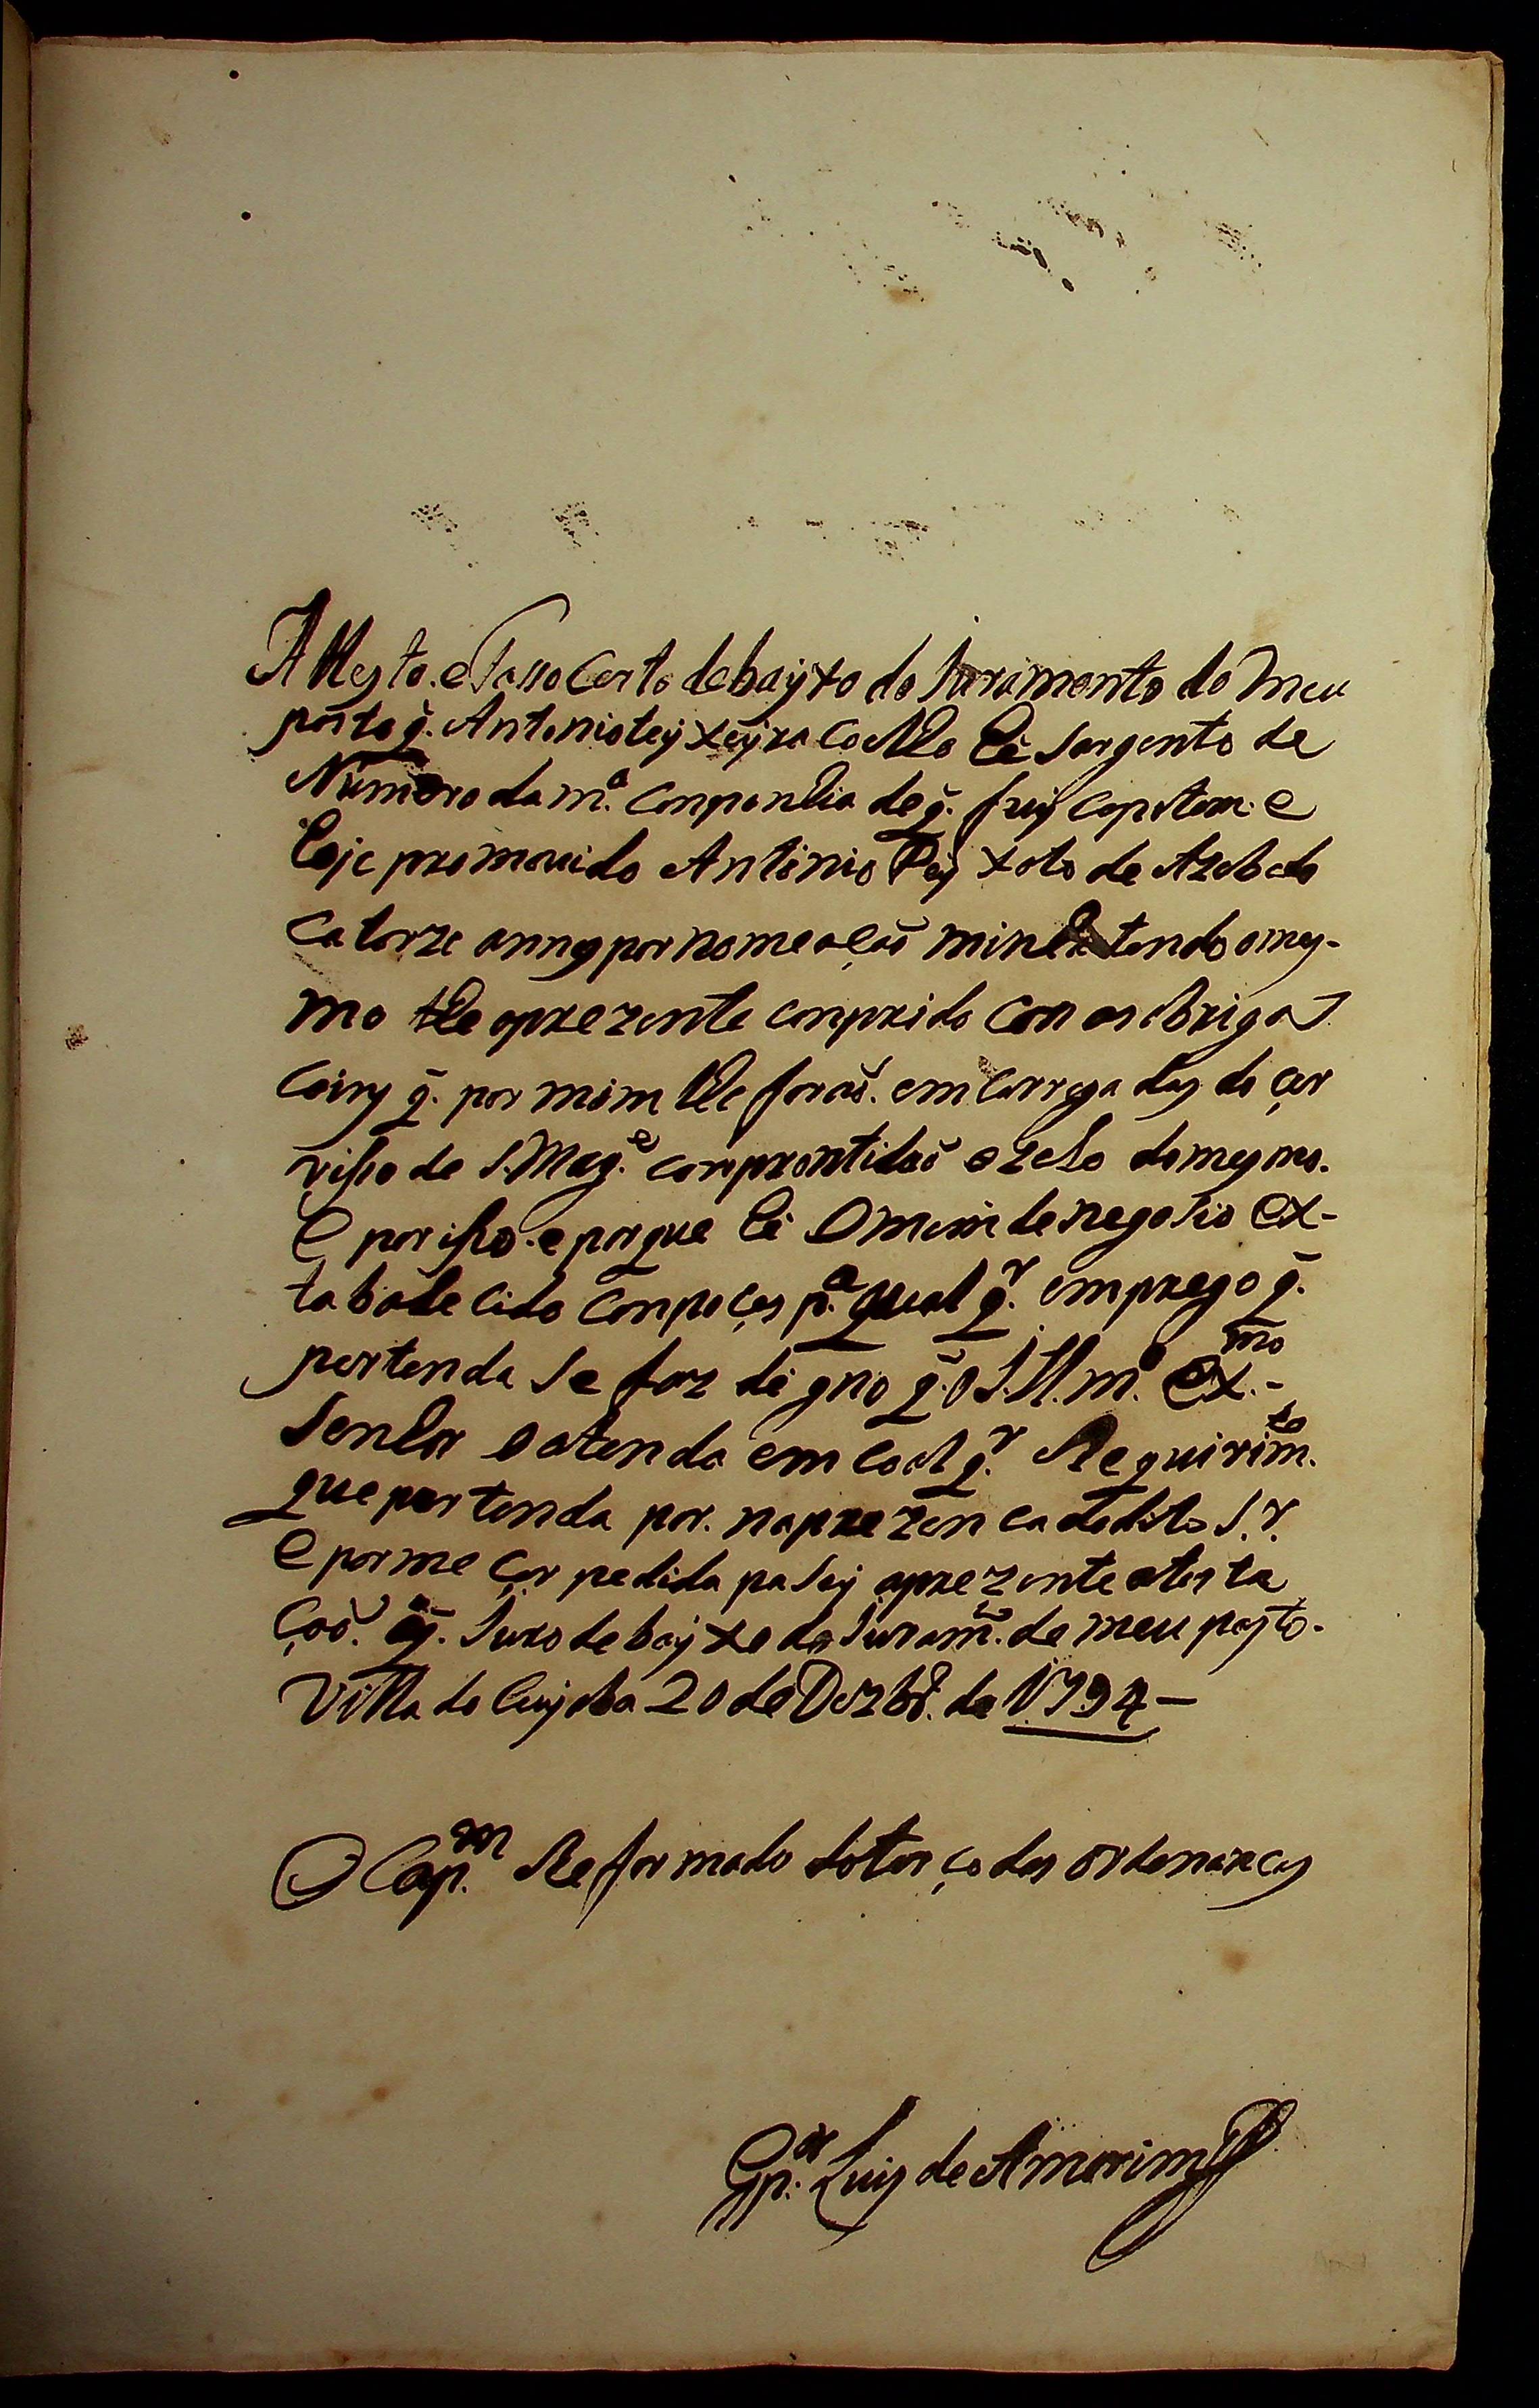 Attesto. e Passo Certo debayxo do Juramento do meu
posto q̃. Antonio teyxeyra Coelho he Sargento de
Numero da m.ª Conpanhia de q̃. fuy capitam. e
hoje promovido Antonio Peyxoto de Azebedo
Catorze annos por nomeação minha tendo o mes-
mo the oprezente conprido con as obriga
Coins q̃. por mim lhe forão. emCarregadas do çer
visso de S. Mag.e comprontidão e zelo do mesmo.
E por isso. e porque he Omeim de negosio ex-
tabalecido Con poçes p.ª qual q.r emprego q̃.
pertenda Se faz digno q̃. o I.ll.mo ex.mo -
Senhor o atenda em Coal q.r Requirim.to
que pertenda por. na prezenca do dito S.r.
E por me çer pedida pasey aprezente atesta
ção. q̃. Juro debayxo do Juram.to de meu posto.
Villa do Cuyaba 20 de Dezbr.o de 1794 -
O Cap.am Reformado do terço das ordenancas
Gp.ar Luis de Amorim